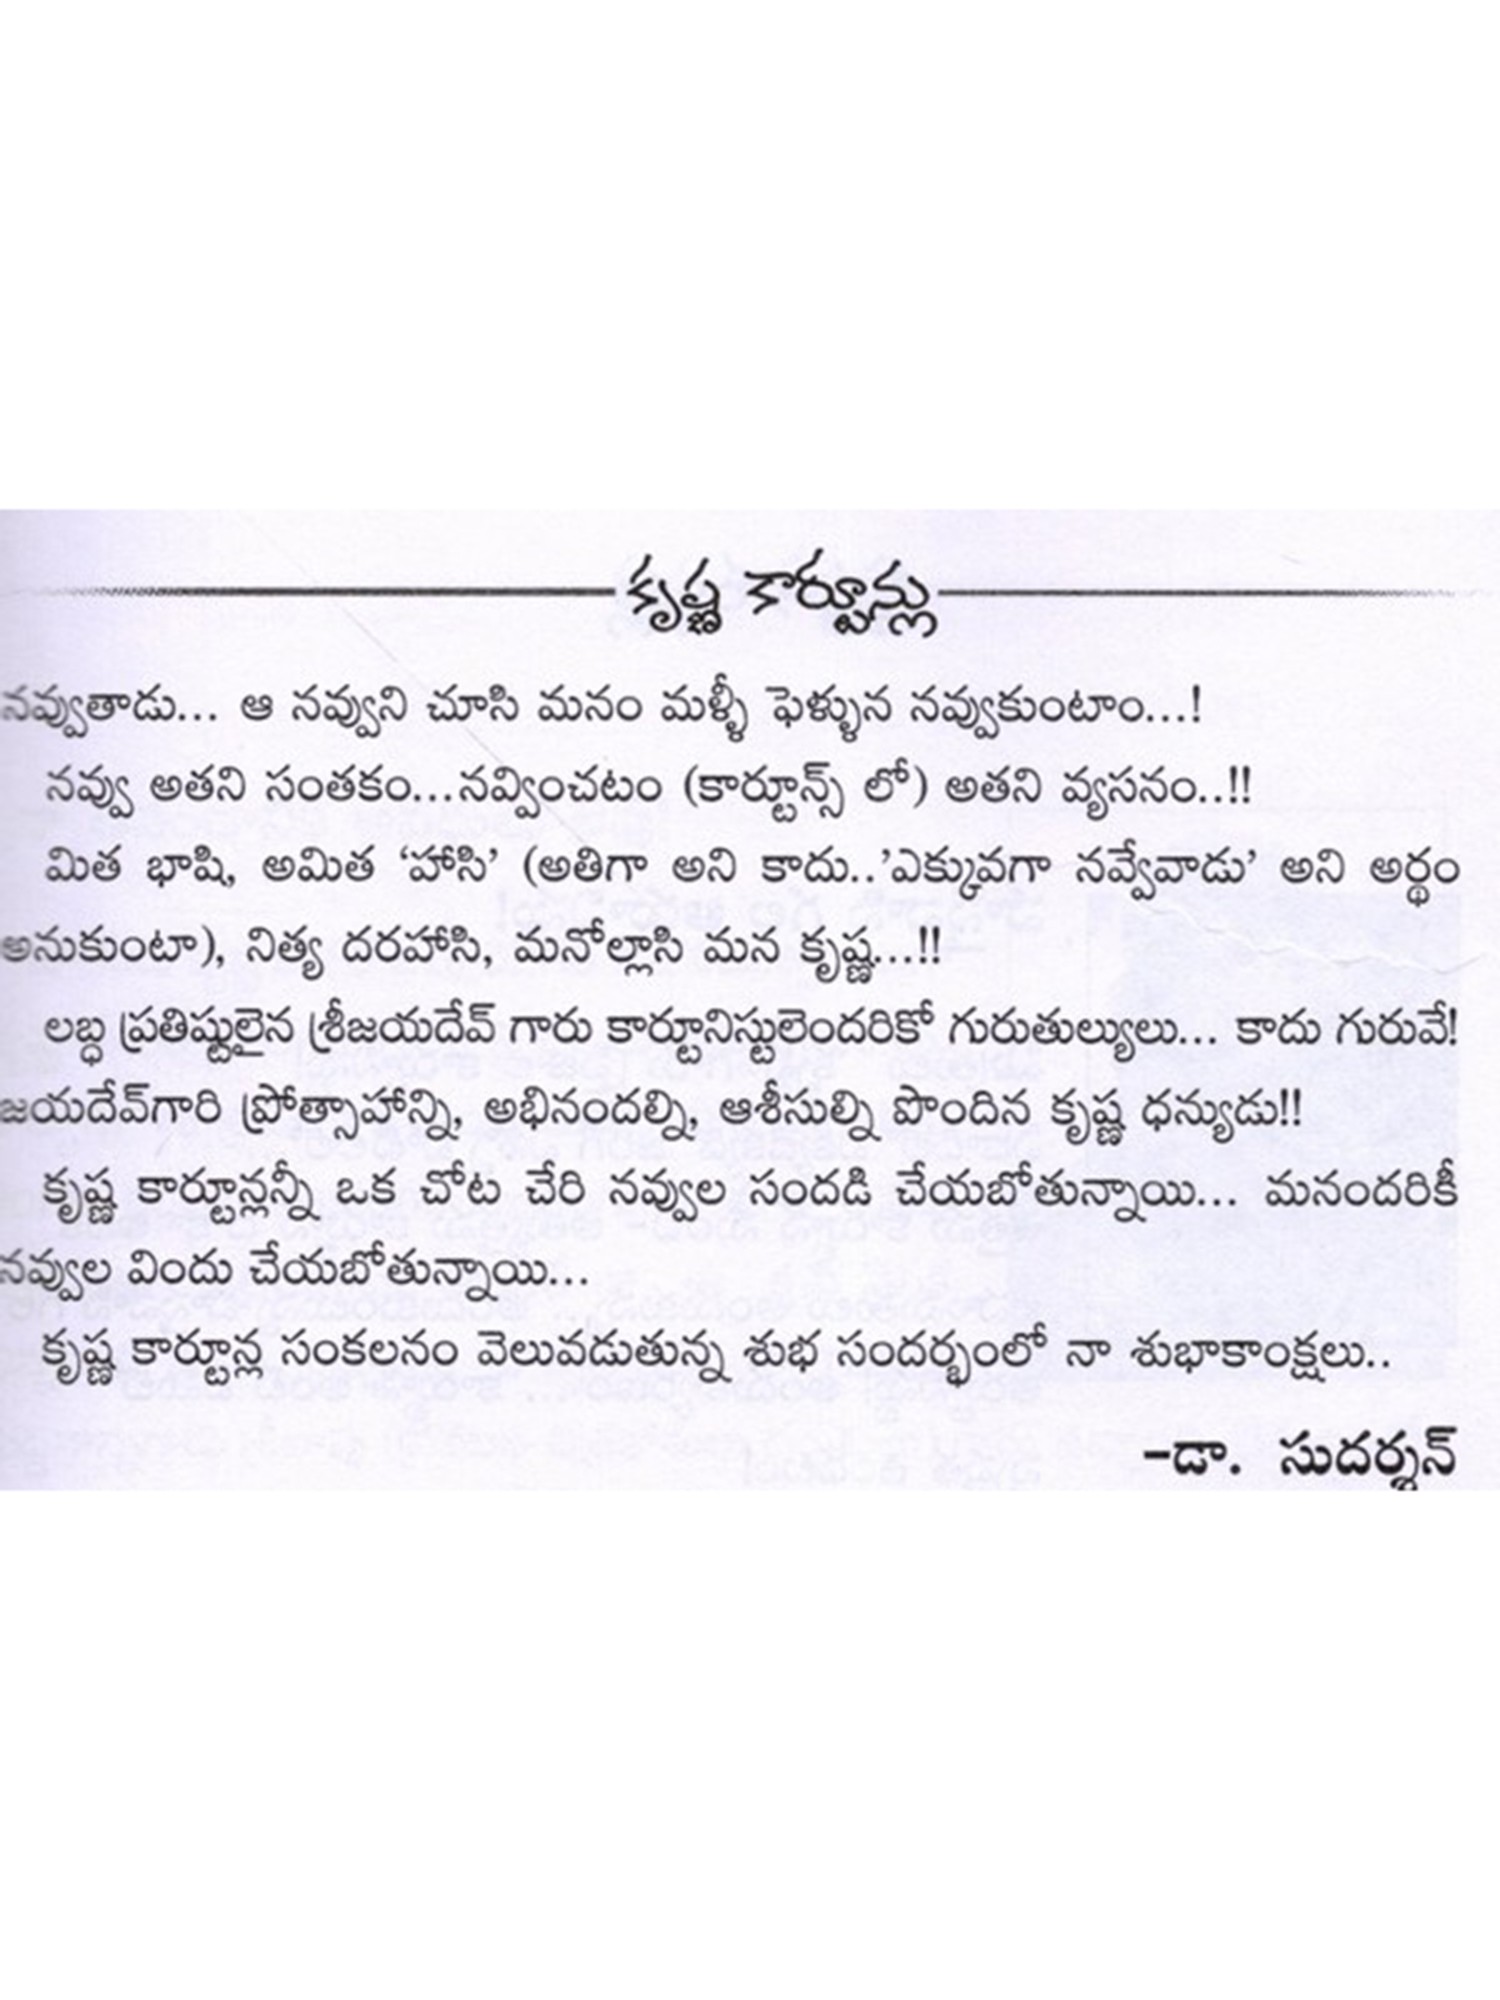 కృష్ణ కార్టూన్లు
నవ్వుతాడు... ఆ నవ్వుని చూసి మనం మళ్ళీ ఫెళ్ళున నవ్వుకుంటాం...!
నవ్వు అతని సంతకం...నవ్వించటం (కార్టూన్స్ లో) అతని వ్యసనం..!!
మిత భాషి, అమిత ‘హాసి’ (అతిగా అని కాదు..’ఎక్కువగా నవ్వేవాడు’ అని అర్థం
అనుకుంటా), నిత్య దరహాసి, మనోల్లాసి మన కృష్ణ...!!
లబ్ధ ప్రతిష్టులైన శ్రీజయదేవ్ గారు కార్టూనిస్టులెందరికో గురుతుల్యులు... కాదు గురువే!
జయదేవ్‌గారి ప్రోత్సాహాన్ని, అభినందల్ని, ఆశీసుల్ని పొందిన కృష్ణ ధన్యుడు!!
కృష్ణ కార్టూన్లన్నీ ఒక చోట చేరి నవ్వుల సందడి చేయబోతున్నాయి... మనందరికీ
నవ్వుల విందు చేయబోతున్నాయి...
కృష్ణ కార్టూన్ల సంకలనం వెలువడుతున్న శుభ సందర్భంలో నా శుభాకాంక్షలు..
-డా. సుదర్శన్